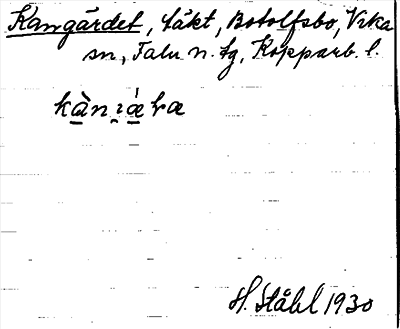 Kangärdet, täkt, Botolfsbo, Vika
sn, Falu n. tg, Kopparb. l.
H. Ståhl 1930